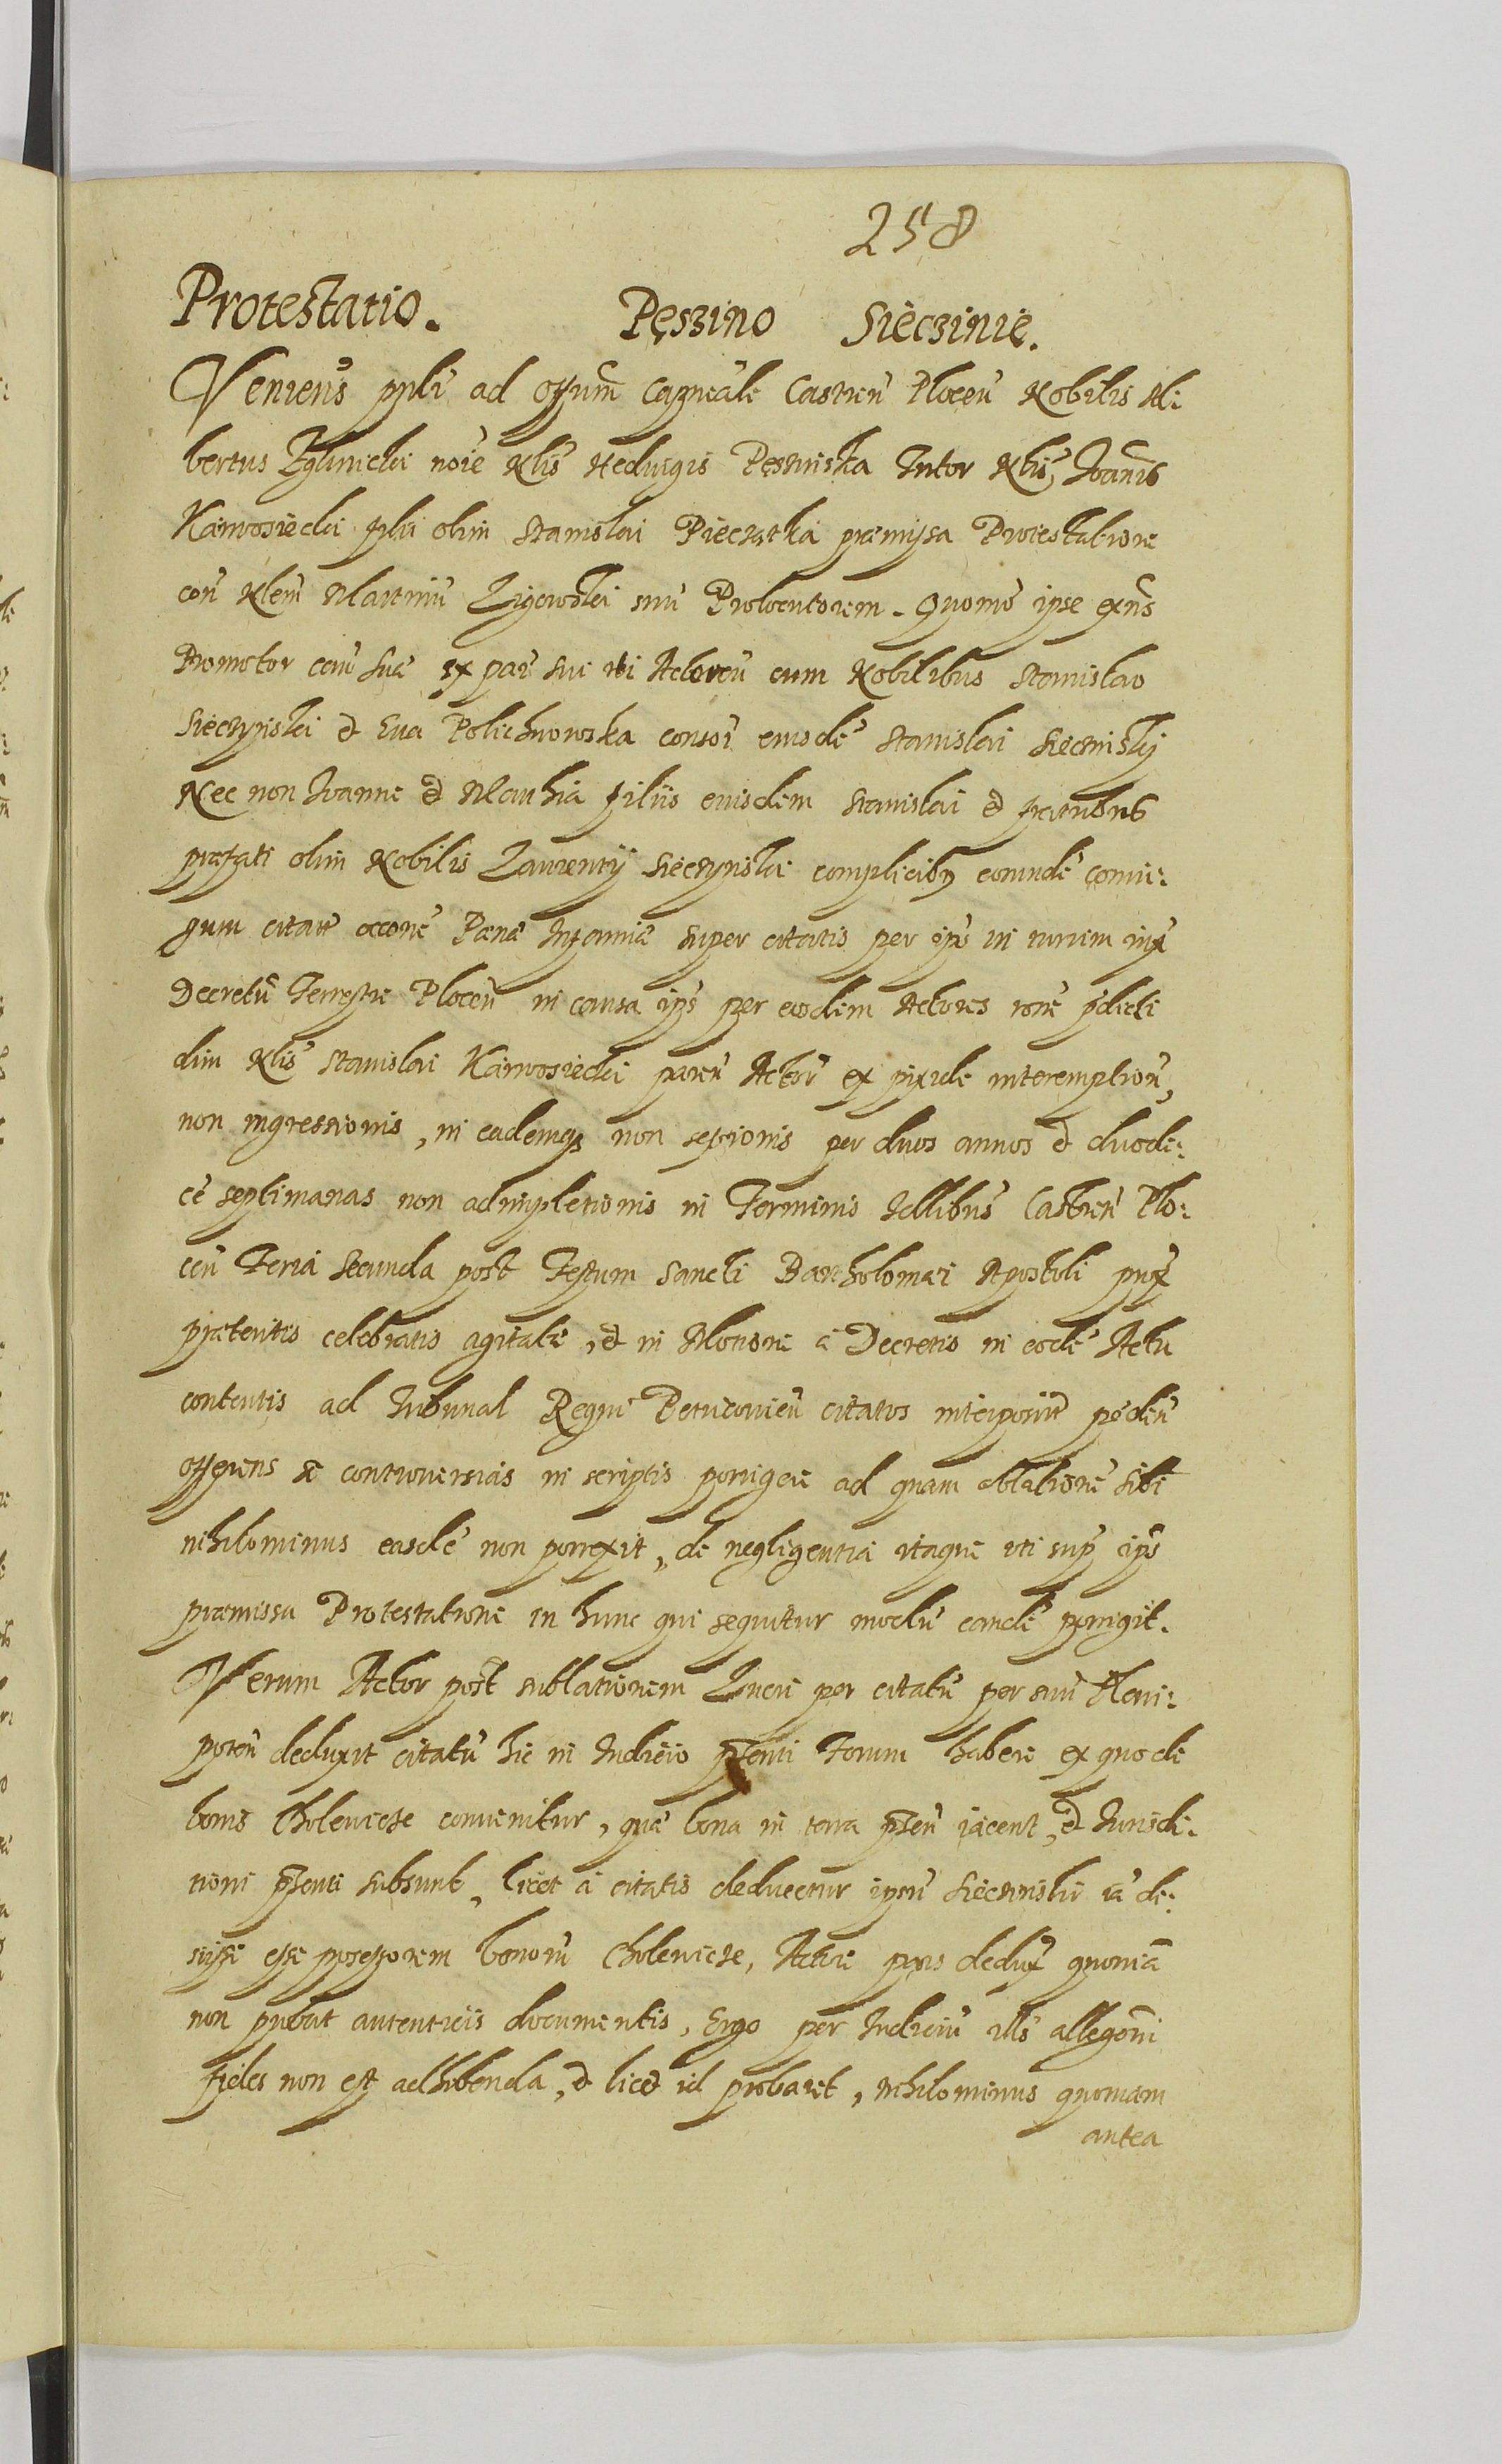 258
Protestatio. Pęszino Siecziniе.
Veniens ppli ad Offium Capneale Castren Plocen Nobilis Al
bertus Zglinicki noie Nlis Heduigis Pęszinska Tutor Nlis Joannis
Karwosiecki filii olim Stanislai Pieczątka præmissa Protestatione
con Nlem Martinu Zigowski suu Prolocutorem. Quomo ipse exns
Promotor cau sua ex par sui uti Actoreu cum Nobilibus Stanislao
Sieczynski et Eua Polichnowska consor eiusde Stanislai Siecznisky
Nec non Joanne et Mathia filiis eiusdem Stanislai et fratribus
præfati olim Nobilis Laurentij Sieczynski complicibus eorunde
citatr occone Pæna Infamiæ super citatis per ips in
Decretu Terrestre Plocen in causa ips per eosdem Actores rone pdicti
olim Nlis Stanislai Karwosiecki paren Actor ex pixide interemption,
non ingressionis, in eademqs non sessionis per duos annos et duode:
ce septimanas non adimpletionis in Terminis Qllibus Castren Plo:
cen Feria Secunda post Festum Sancti Bartholomæi Apostoli prox
præteritis celebratis agitata, et in Motione a Decretis in eode Actu
contentis ad Tribunal Regni Petricouien citatos interposit
offerens se controuersias in scriptis porrigere ad quam oblatione sibi
nihilominus easde non porrexit, de negligentia itaque uti sup ips
præmissa Protestatione in hunc qui sequitur modu eande porrigit.
Verum Actor post sublationem Lucri per citatu per suu Pleni:
poten deduxit citatu hic in Iudicio pnti Forum habere ex quo de
bonis Cholewicze conuenitur, quæ bona in terra pnten iacent, et Iurisdi.
tioni pnti subsunt, licet a citatis deducetur ipsu Sieczinski ia de:
siisse esse possessorem bonoru Cholewicze, Actor pars dedux quonia
non probat autenticis documentis, Ergo per Iudiciu ills allegoni
fides non est adhibenda, et licet id probaret, nihilominus quoniam
antea